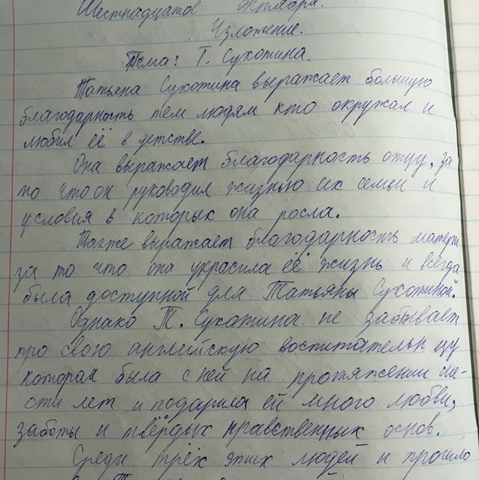 Шестнадцатое октября.
Изложение.
Тема: Т. Сухотина.
Татьяна Сухотина выражает большую
благодарность тем людям кто окружал и
любил её в детстве.
Она выражает благодарность отцу, за
то что он руководил жизнью их семьи и
условия в которых она росла.
Также выражает благодарность матери
за то что она украсила её жизнь и всегда
была доступной для Татьяны Сухотиной.
Однако Т. Сухатина не забывает
про свою английскую воспитательницу
которая была с ней на протяжении ше-
сти лет и подарила ей много любви,
заботы и твёрдых нравственных основ.
Среди трёх этих людей и прошло